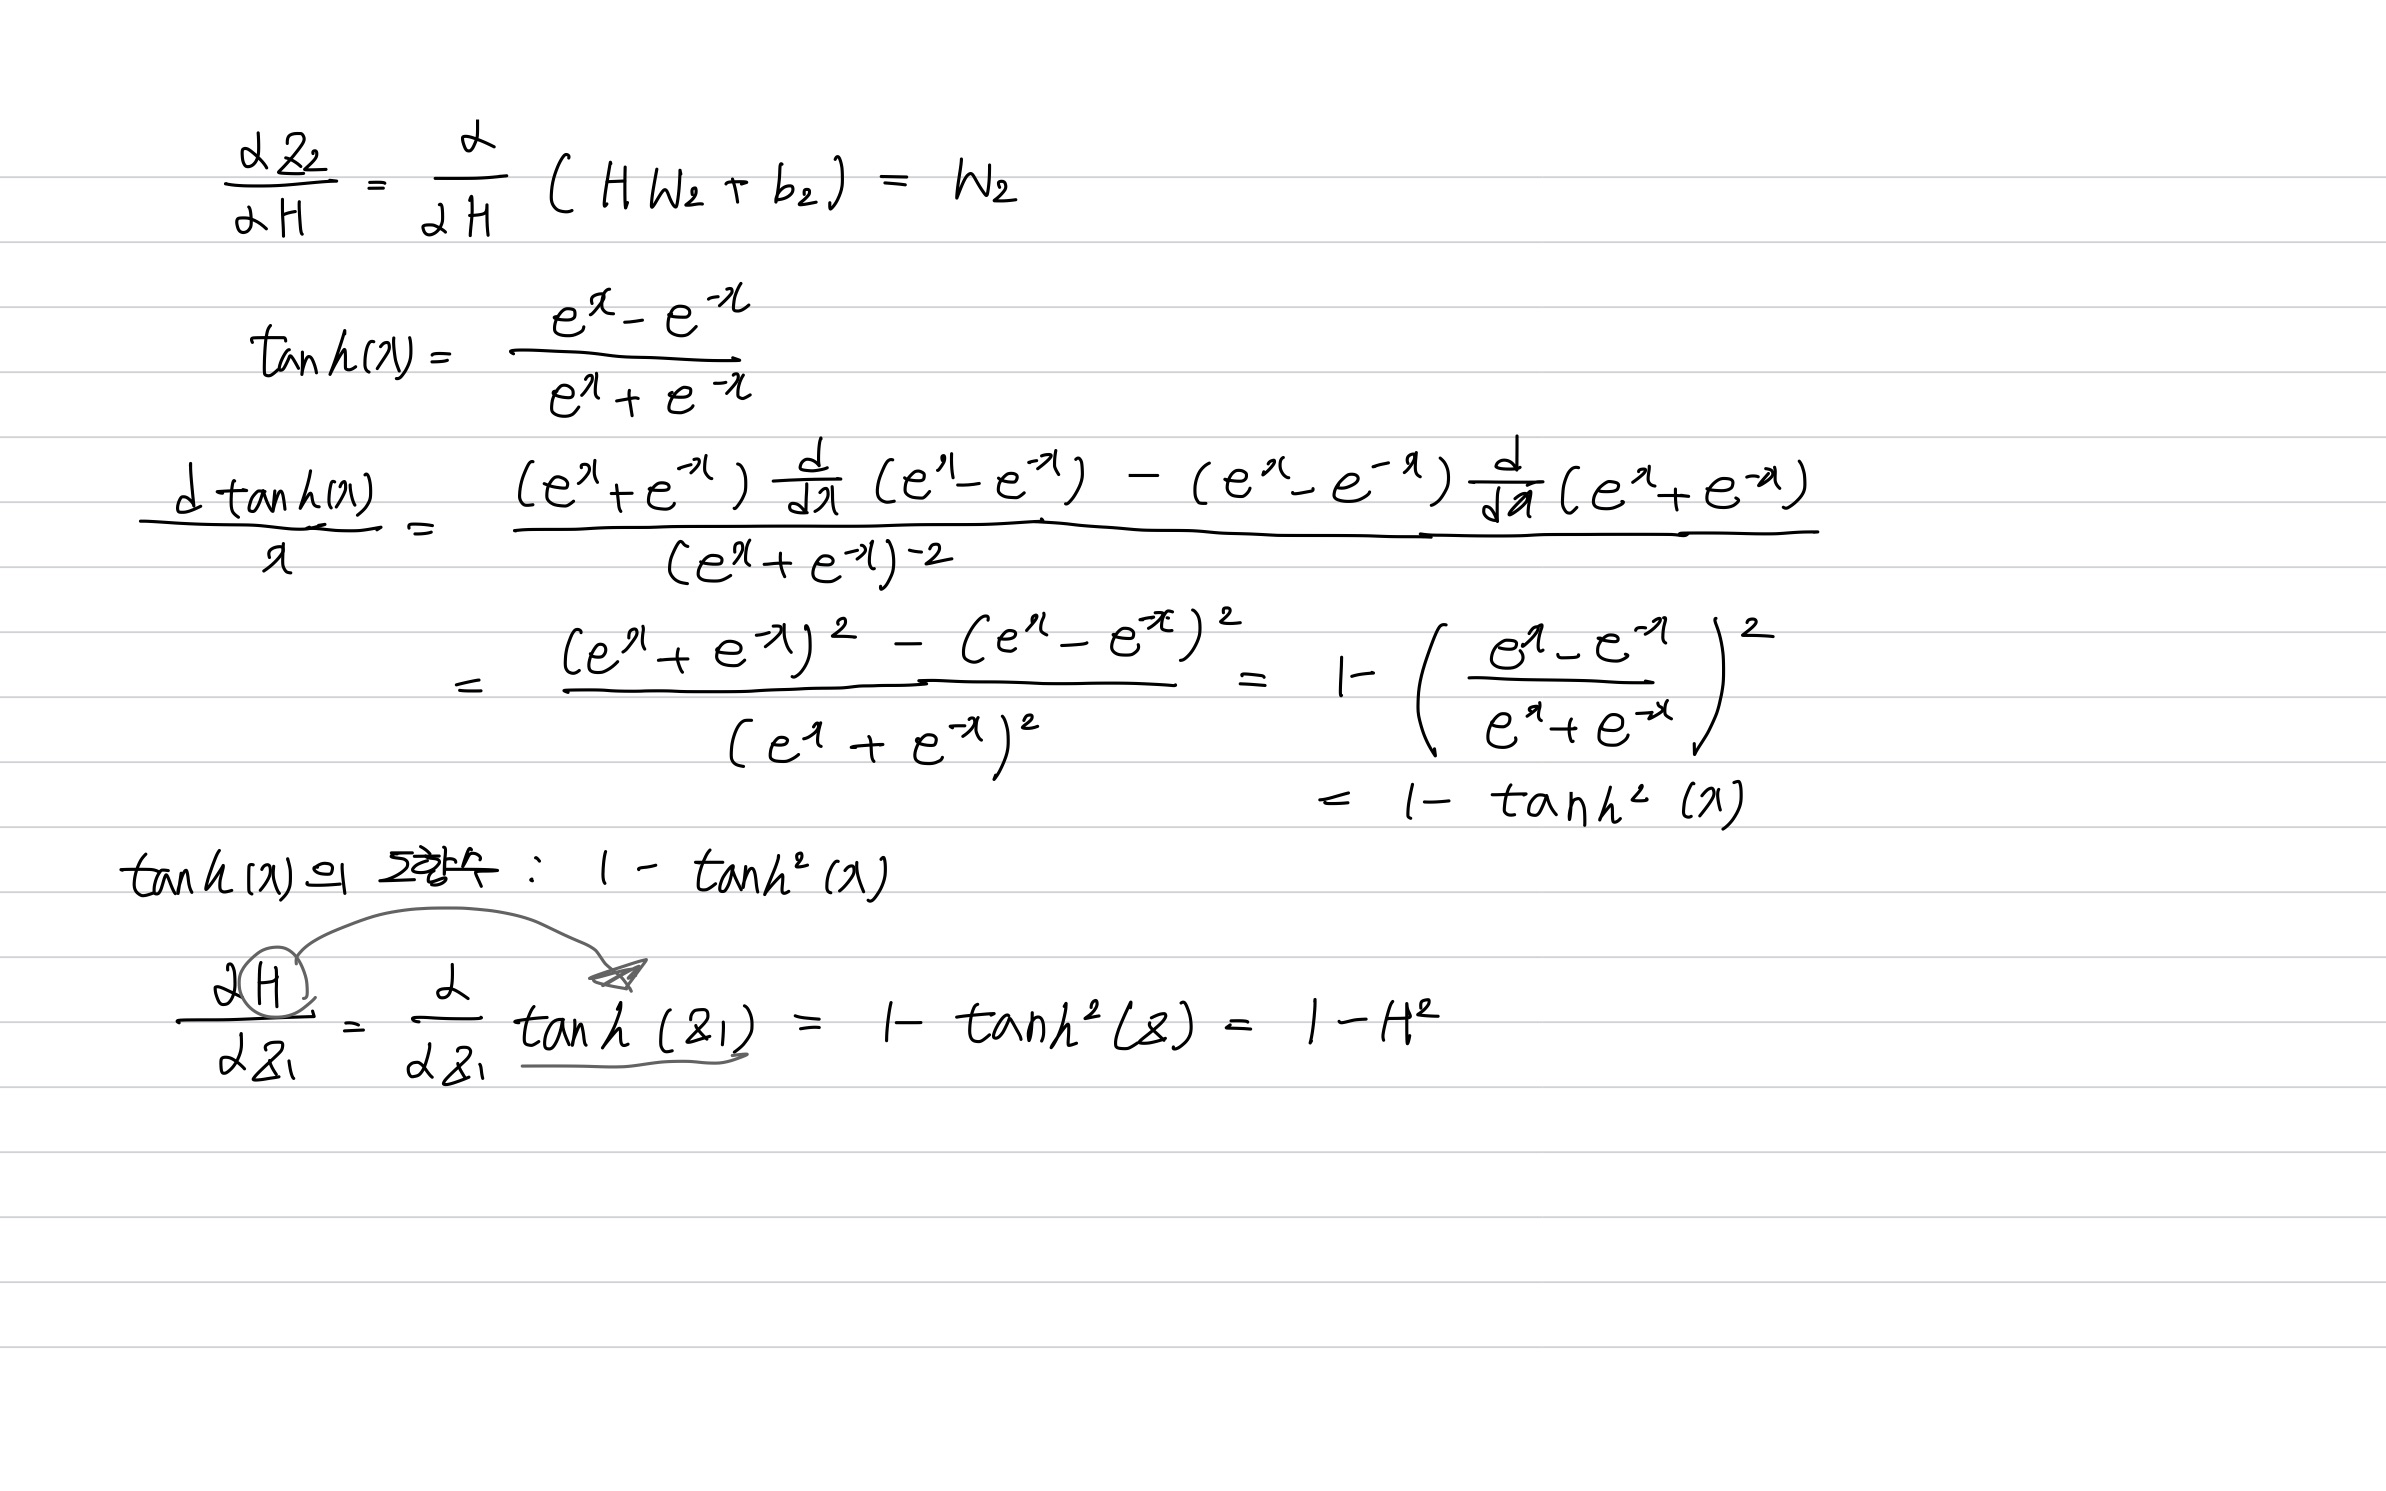 ∂Z₂/∂H = ∂/∂H (HW₂ + b₂) = W₂
tanh(x) = (eˣ - e⁻ˣ)/(eˣ + e⁻ˣ)
d tanh(x)/x = ((eˣ + e⁻ˣ) d/dx (eˣ - e⁻ˣ) - (eˣ - e⁻ˣ) d/dx (eˣ + e⁻ˣ))/(eˣ + e⁻ˣ)⁻²
= ((eˣ + e⁻ˣ)² - (eˣ - e⁻ˣ)²)/(eˣ + e⁻ˣ)² = 1 - ((eˣ - e⁻ˣ)/(eˣ + e⁻ˣ))²
= 1 - tanh²(x)
tanh(x)의 도함수 : 1 - tanh²(x)
∂H/∂Z₁ = ∂/∂Z₁ tanh(Z₁) = 1 - tanh²(Z) = 1 - H²